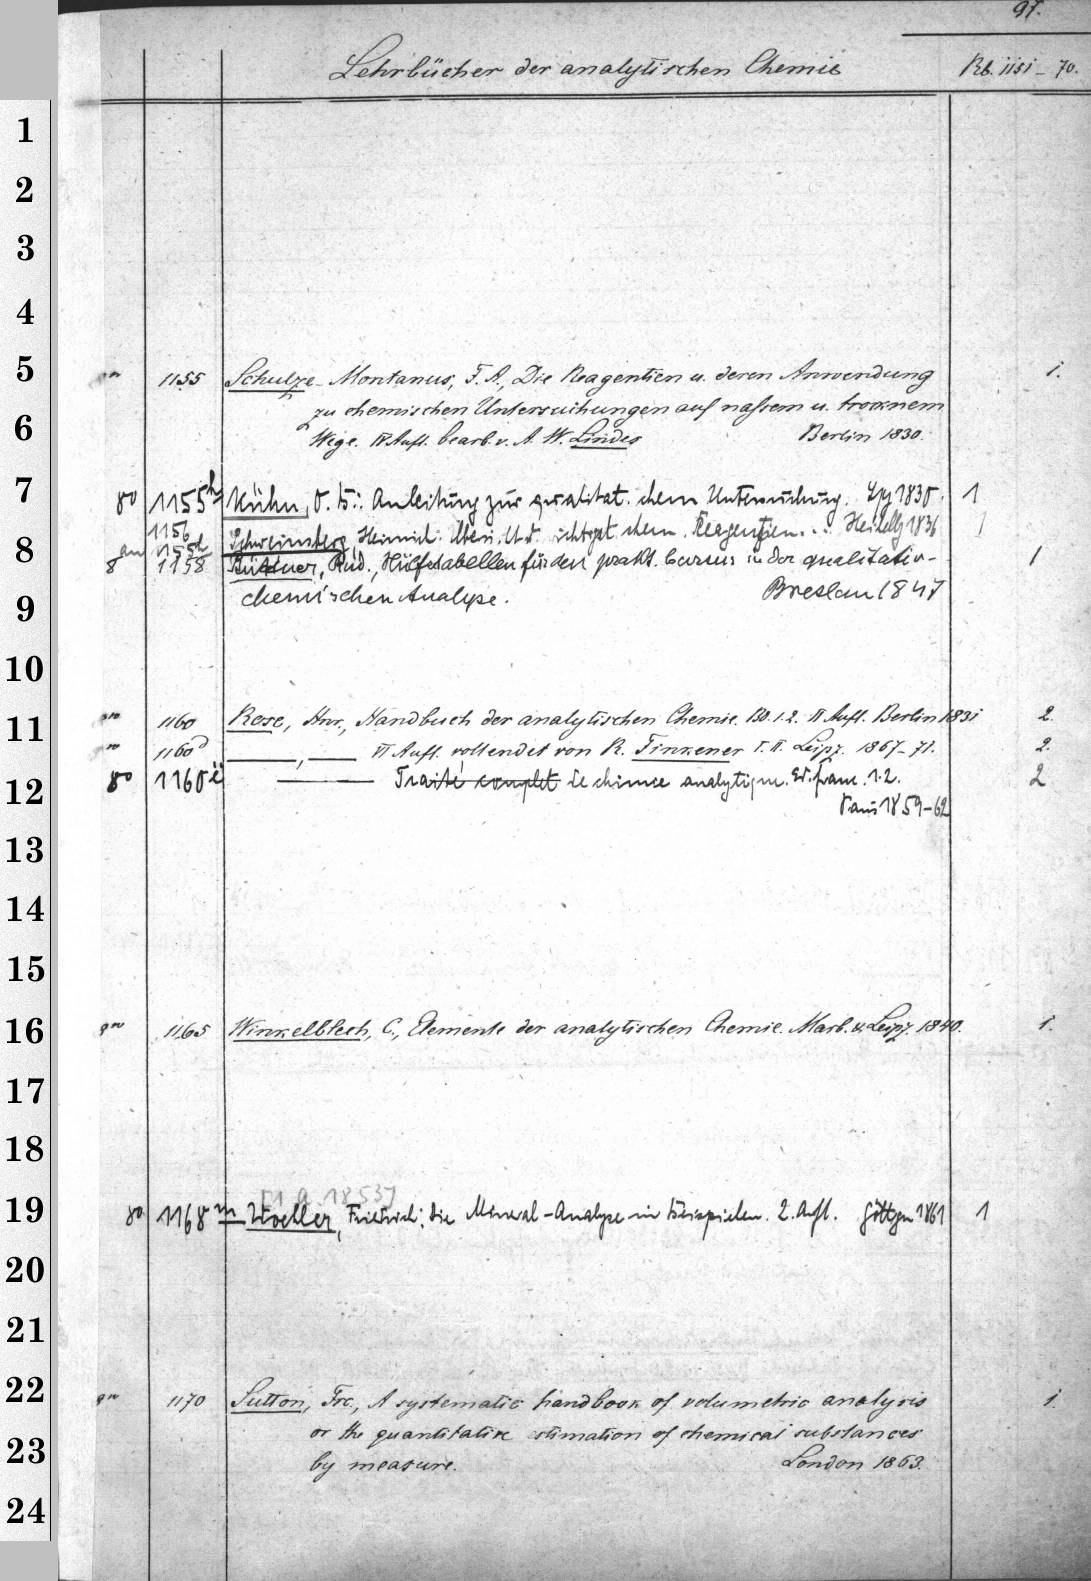 97.
Lehrbücher der analytischen Chemie Rb. 1151-70.
1
2
3
4
5
1155 Schulze-Montanus, F. A., Die Reagentien u. deren Anwendung 1.
zu chemischen Untersuchungen auf nassem u. trocknem
6
Wege. IV Aufl. bearb. v. A. W. Lindes Berlin 1830.
7
80 1155h Kühn, O. B.: Anleitung zur qualitat. chem Untersuchung. Lpg 1830. 1
1156
8
1155h Schweinsberg, Heinrich: chem. Reagentien... Heidelbg 1836 1
8 1158 Büttner, Rud., Hülfstabellen für den prakt. Cursus in der qualitativ- 1
9
chemischen Analyse. Breslau 1847
10
11
1160 Rose, Hnr., Handbuch der analytischen Chemie. Bd. 1.2. II Aufl. Berlin 1831 2.
1160d ——, —— VI Aufl. vollendet von R. Finkener I. II. Leipz. 1867-71. 2.
12
80 1160i ——— Traité complet de chimie analytique. Ed. franc. 1.2. 2
Paris 1859-62
13
14
15
16
1165 Winkelblech, C., Elemente der analytischen Chemie. Marb. u. Leipz. 1840. 1.
17
18
[1 A 1853]
19
80 1168m Woehler, Friedrich: Die Mineral-Analyse in Beispielen. 2. Aufl. Göttgn 1861 1
20
21
22
1170 Sutton, Frc., A systematic handbook of volumetric analysis 1.
or the quantitative estimation of chemical substances
23
by measure. London 1863.
24